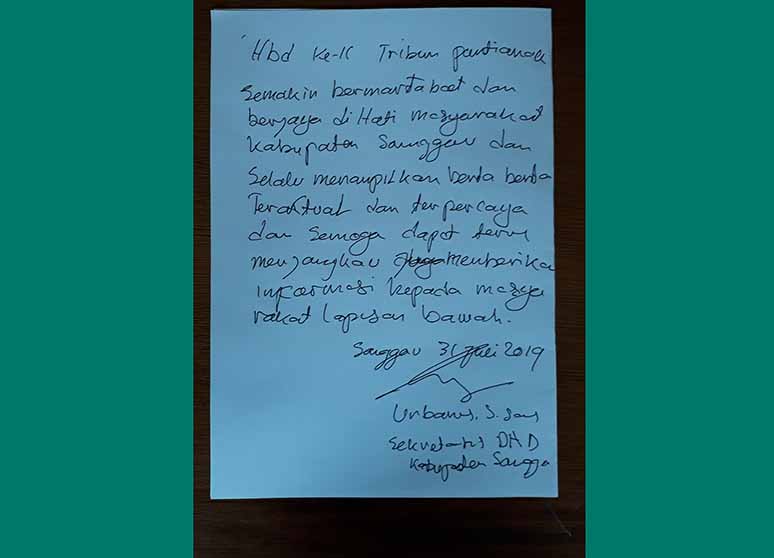 Hbd Ke-11 Tribun pontianak
Semakin bermartabat dan
berjaya di Hati masyarakat
Kabupaten Sanggau dan
Selalu menampilkan berita berita
Teraktual dan terpercaya
dan Semoga dapat terus
menjangkau memberika
informasi kepada masya
rakat lapisan bawah.
Sanggau 31 Juli 2019
Urbanus. S. Sos
Sekretaris DAD
Kabupaten Sangga